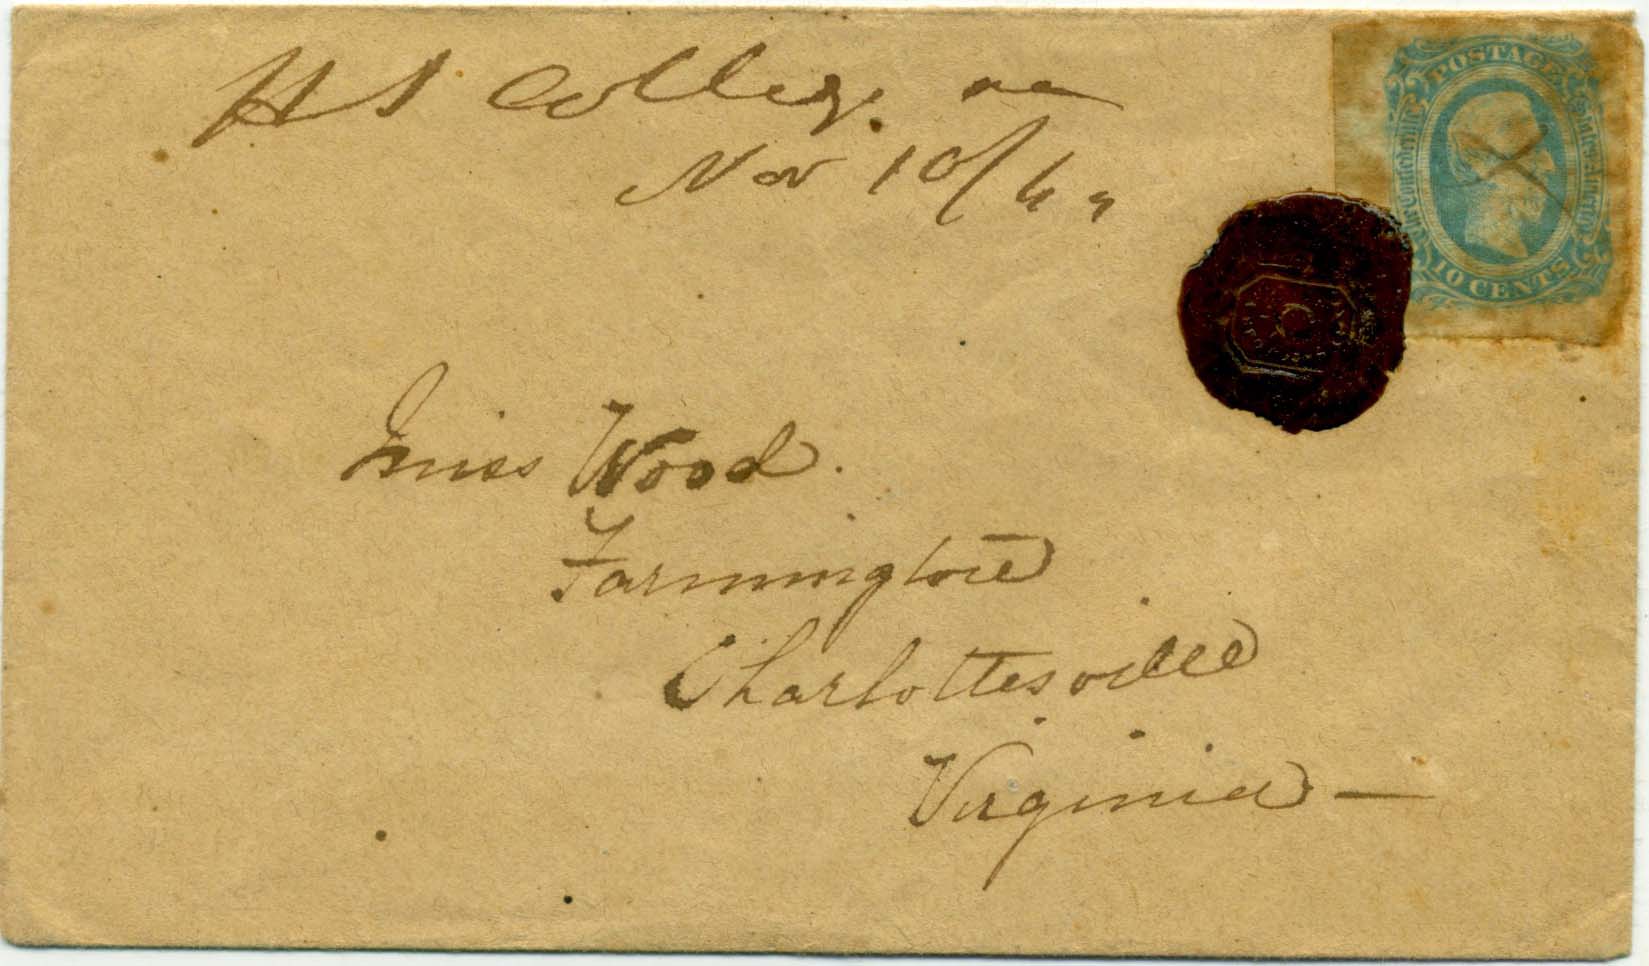 H S College. Va
Nov 10/64
POSTAGE
The Confederate States of America
10 CENTS
Miss Wood.
Farmington
Charlottesville
Virginia —